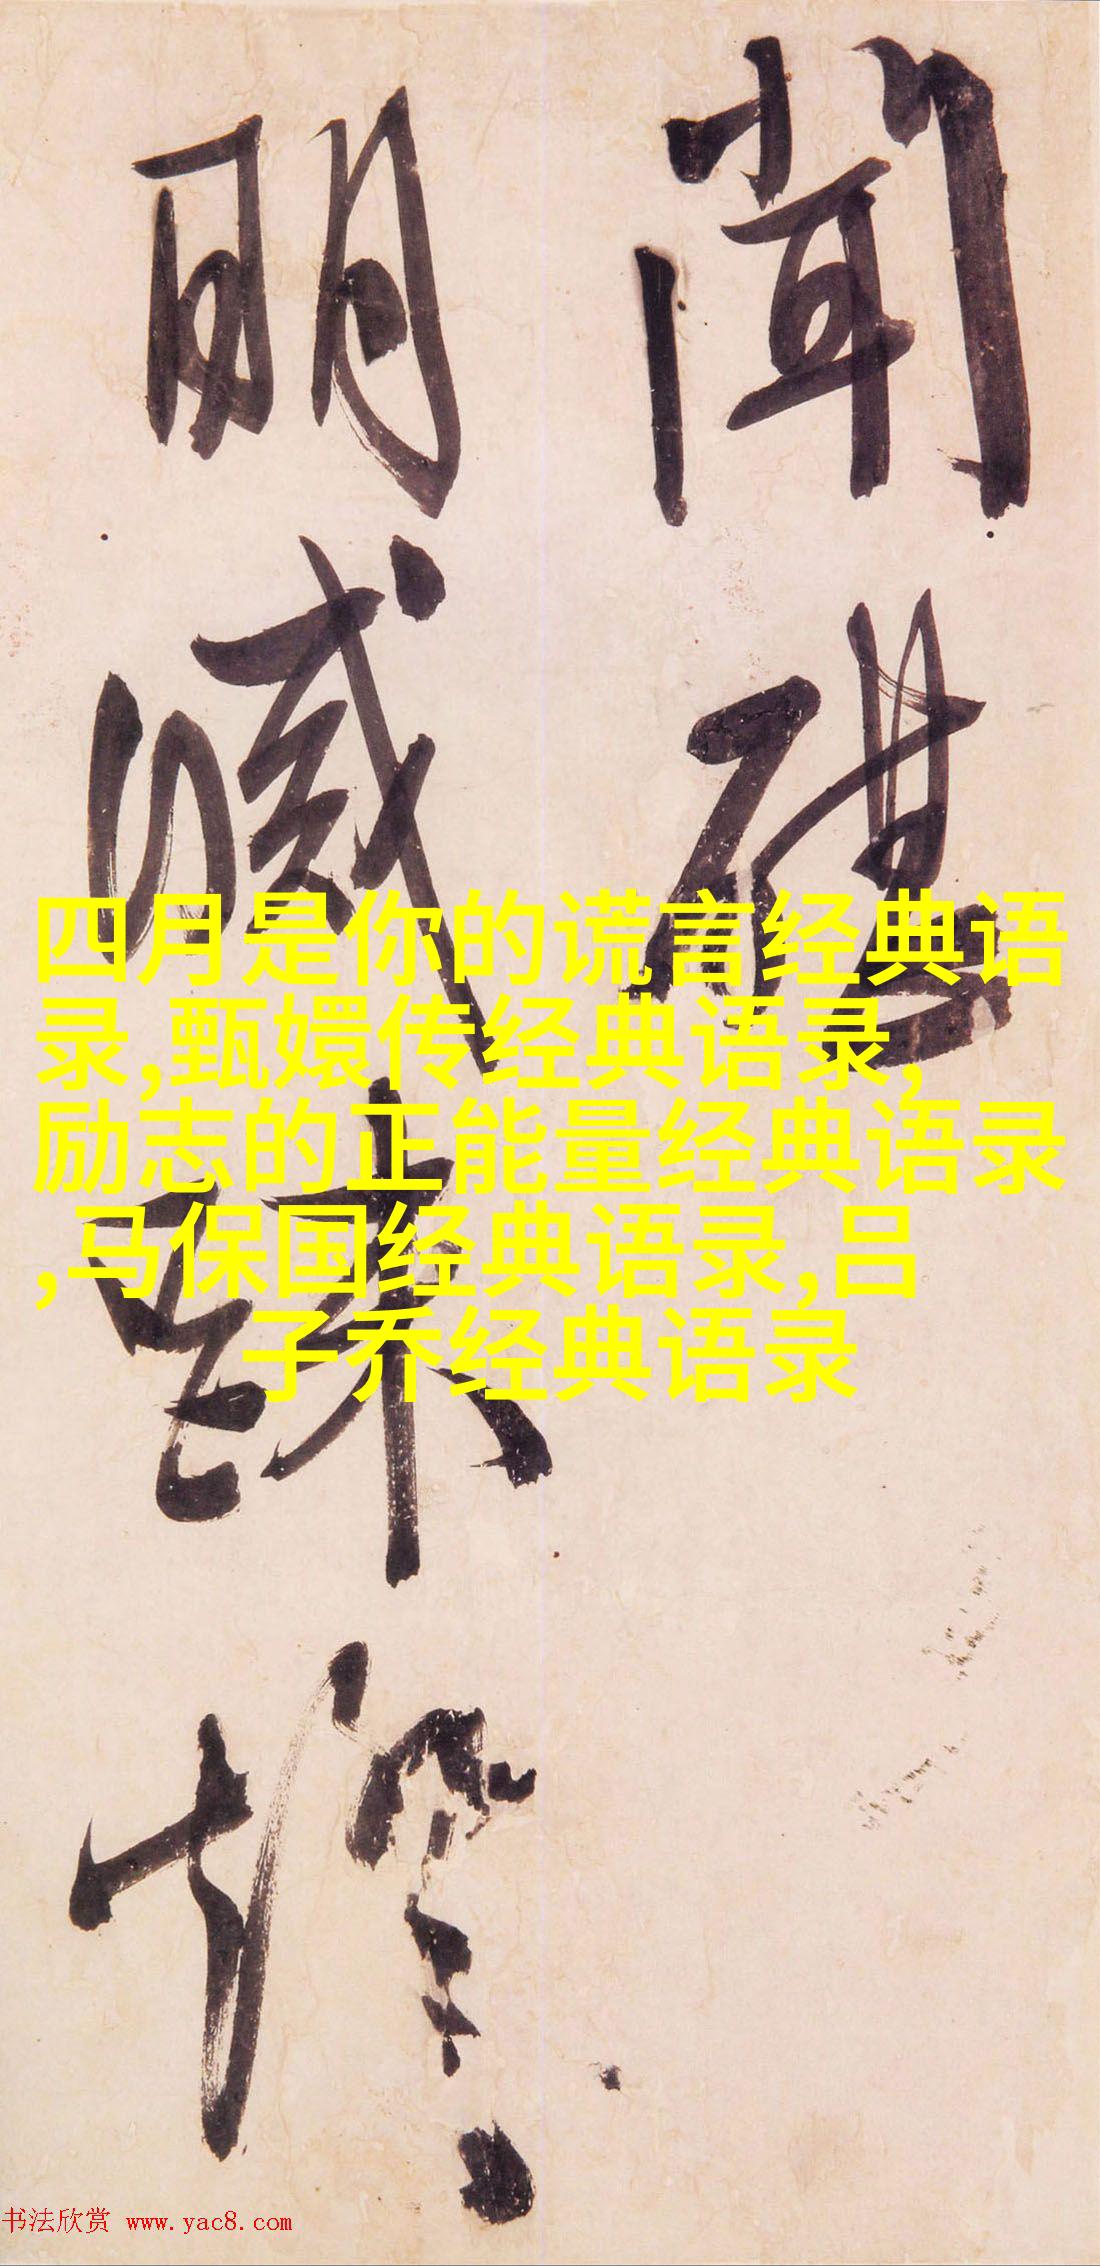 聞
明
四月是你的谎言经典语
录,甄嬛传经典语录,
励志的正能量经典语录
,马保国经典语录,吕
子乔经典语录
书法欣赏 www.yac8.com